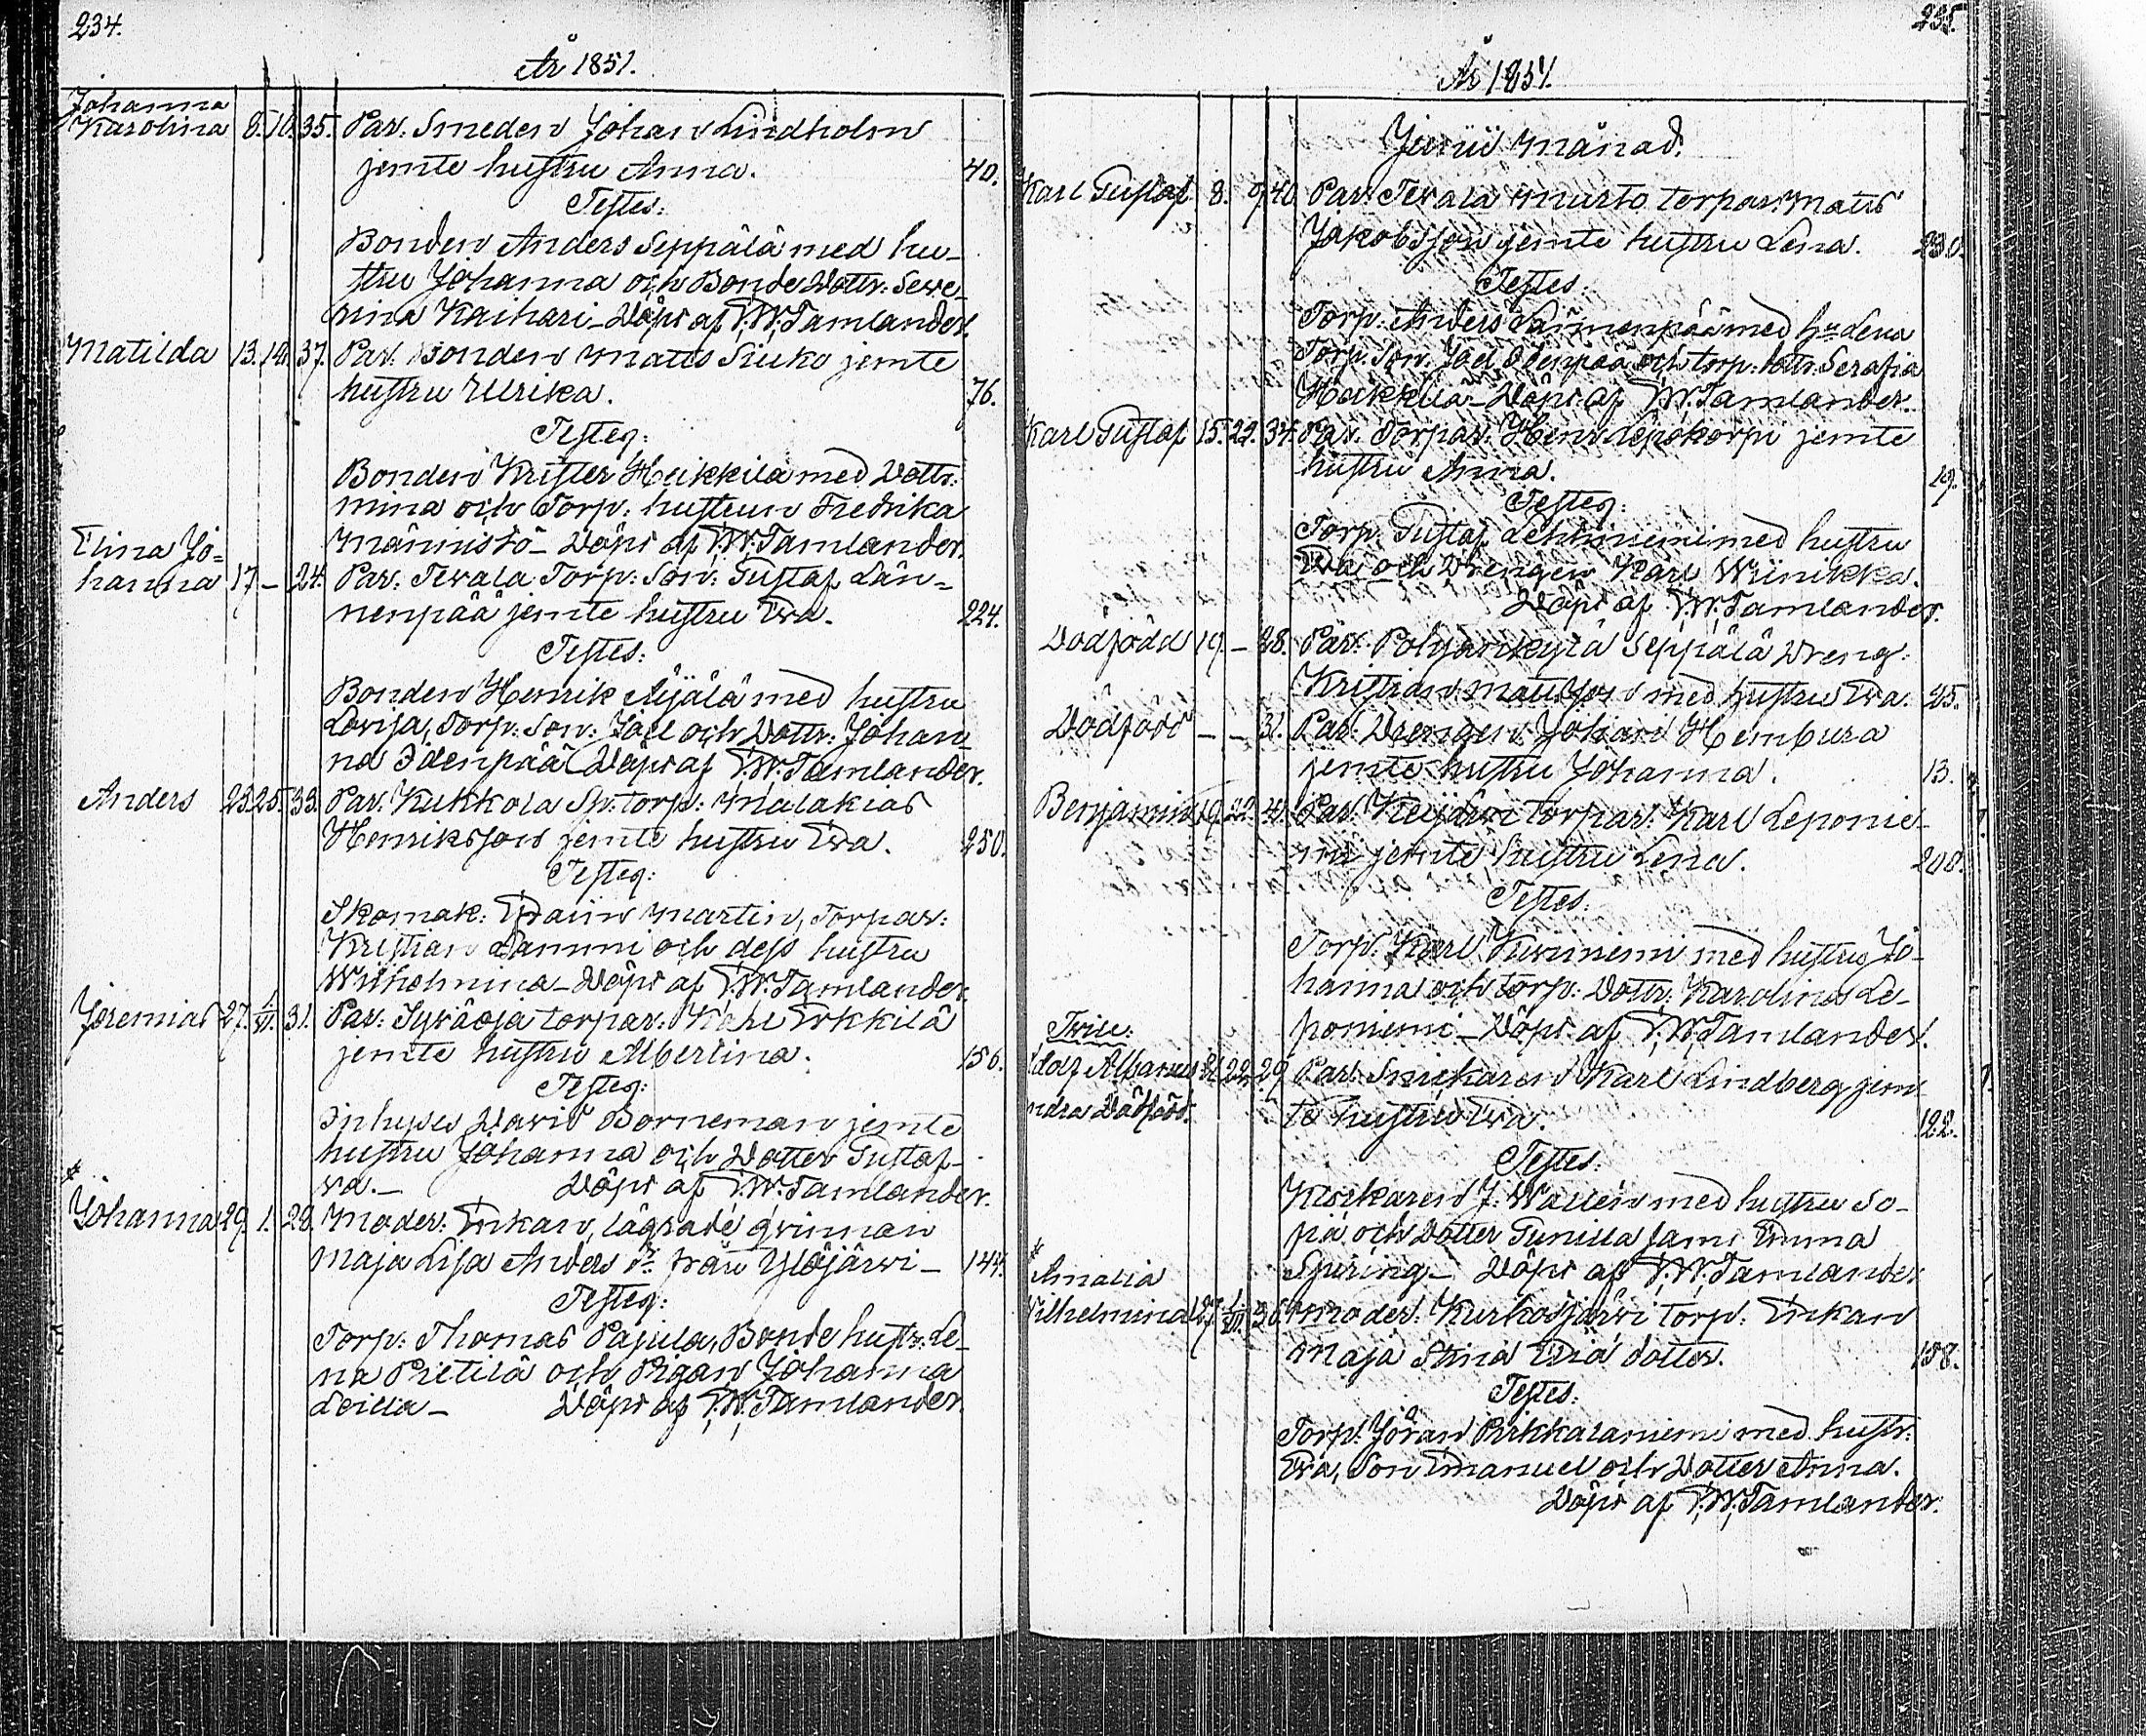 234.
År 1851.
Johanna
Karolina 8. 10. 35. Par: Smeden Johan Lindholm
jemte hustru Anna. 40.
Testes:
Bonden Anders Seppälä med hu-
stru Johanna och Bonde Dottr: Seve-
rina Kaihari - Döpt af T.W. Tamlander.
Matilda 13. 14. 37. Par: Bonden Matts Siuko jemte
hustru Ulrika. 76.
Testes:
Bonden Krister Heikkilä med Dottr:
Mina och Torp: hustrun Fredrika
Männistö - Döpt af T.W. Tamlander.
Elina Jo-
hanna 17. - 24. Par: Tevala Torp: Son: Gustaf Län-
nenpää jemte hustru Eva. 224.
Testes:
Bonden Henrik Äijälä med hustru
Lovisa, Torp: Son: Joel och Dottr: Johan-
na Idenpää Döpt af T.W. Tamlander.
Anders 23. 25. 33. Par: Kukkola Sp: torp: Malakias
Henriksson jemte hustru Eva. 250.
Testes:
Skomak: Martin, Torpar:
Kristian Lammi och dess hustru
Wilhelmina - Döpt af T.W. Tamlander.
Jeremias 27. 1/VI. 31. Par: Syväoja torpar: Karl Erkkilä
jemte hustru Albertina. 156.
Testes:
Inhyses David Borneman jemte
hustru Johanna och Dotter Gustaf-
va. - Döpt af T.W. Tamlander.
*
Johanna 29. 1. 28. Moder: Enkan, lägrade qvinnan
Maja Lisa Anders dr från Ylöjärvi - 144.
Testes:
Torp: Thomas Pajula, Bonde hustr: Le-
na Pietilä och Pigan Johanna
Leilla - Döpt af T.W. Tamlander.
235.
År 1851.
Junii Månad.
Karl Gustaf 8. 9. 40. Par: Tevala Murto torpar: Matts
Jakobsson jemte hustru Lena. 230.
Testes:
Torp: Anders Lännenpää med h:u Lena
Torp: Son: Joel Idenpää och torp: dottr: Serafia
Heikkilä - Döpt af T.W. Tamlander.
Karl Gustaf 15. 22. 34. Par: Torpar: Henr: Lepokorpi jemte
hustru Anna. 19.
Testes:
Torp: Gustaf Lehtiniemi med hustru
Eva och Drengen Karl Wiinikka.
Döpt af T.W. Tamlander.
Dödfödd 19. - 28. Par: Pohjankylä Seppälä Dreng:
Kristian Mattsson med hustru Eva. 25.
Dödfödd - - 31. Par: Drengen Johan Hembura
jemte hustru Johanna. 13.
Benjamin 19. 22. 41. Par: Keijärvi torpar: Karl Leponie-
mi jemte hustru Lena. 208.
Testes:
Torp: Karl Kiviniemi med hustru Jo-
hanna och torp: Dottr: Karolina Le-
poniemi - Döpt af T.W. Tamlander.
Adolf Albanus 21. 22. 29. Par: Snickaren Karl Lindberg jem-
ndra Dödfödd. te hustru Eva. 122.
Testes:
Klockaren J. Wallen med hustru So-
fia och Dotter Gunilla samt Emma
Spuring - Döpt af T.W. Tamlander
*
Amalia
Wilhelmina 27. 1/VII. 36. Moder: Kurkosjärvi torp: Enkan
Maja Stina dotter. 158.
Testes:
Torp: Jöran Pirkkalaniemi med hustr:
Eva, Son Emanuel och Dotter Anna.
Döpt af T.W. Tamlander.